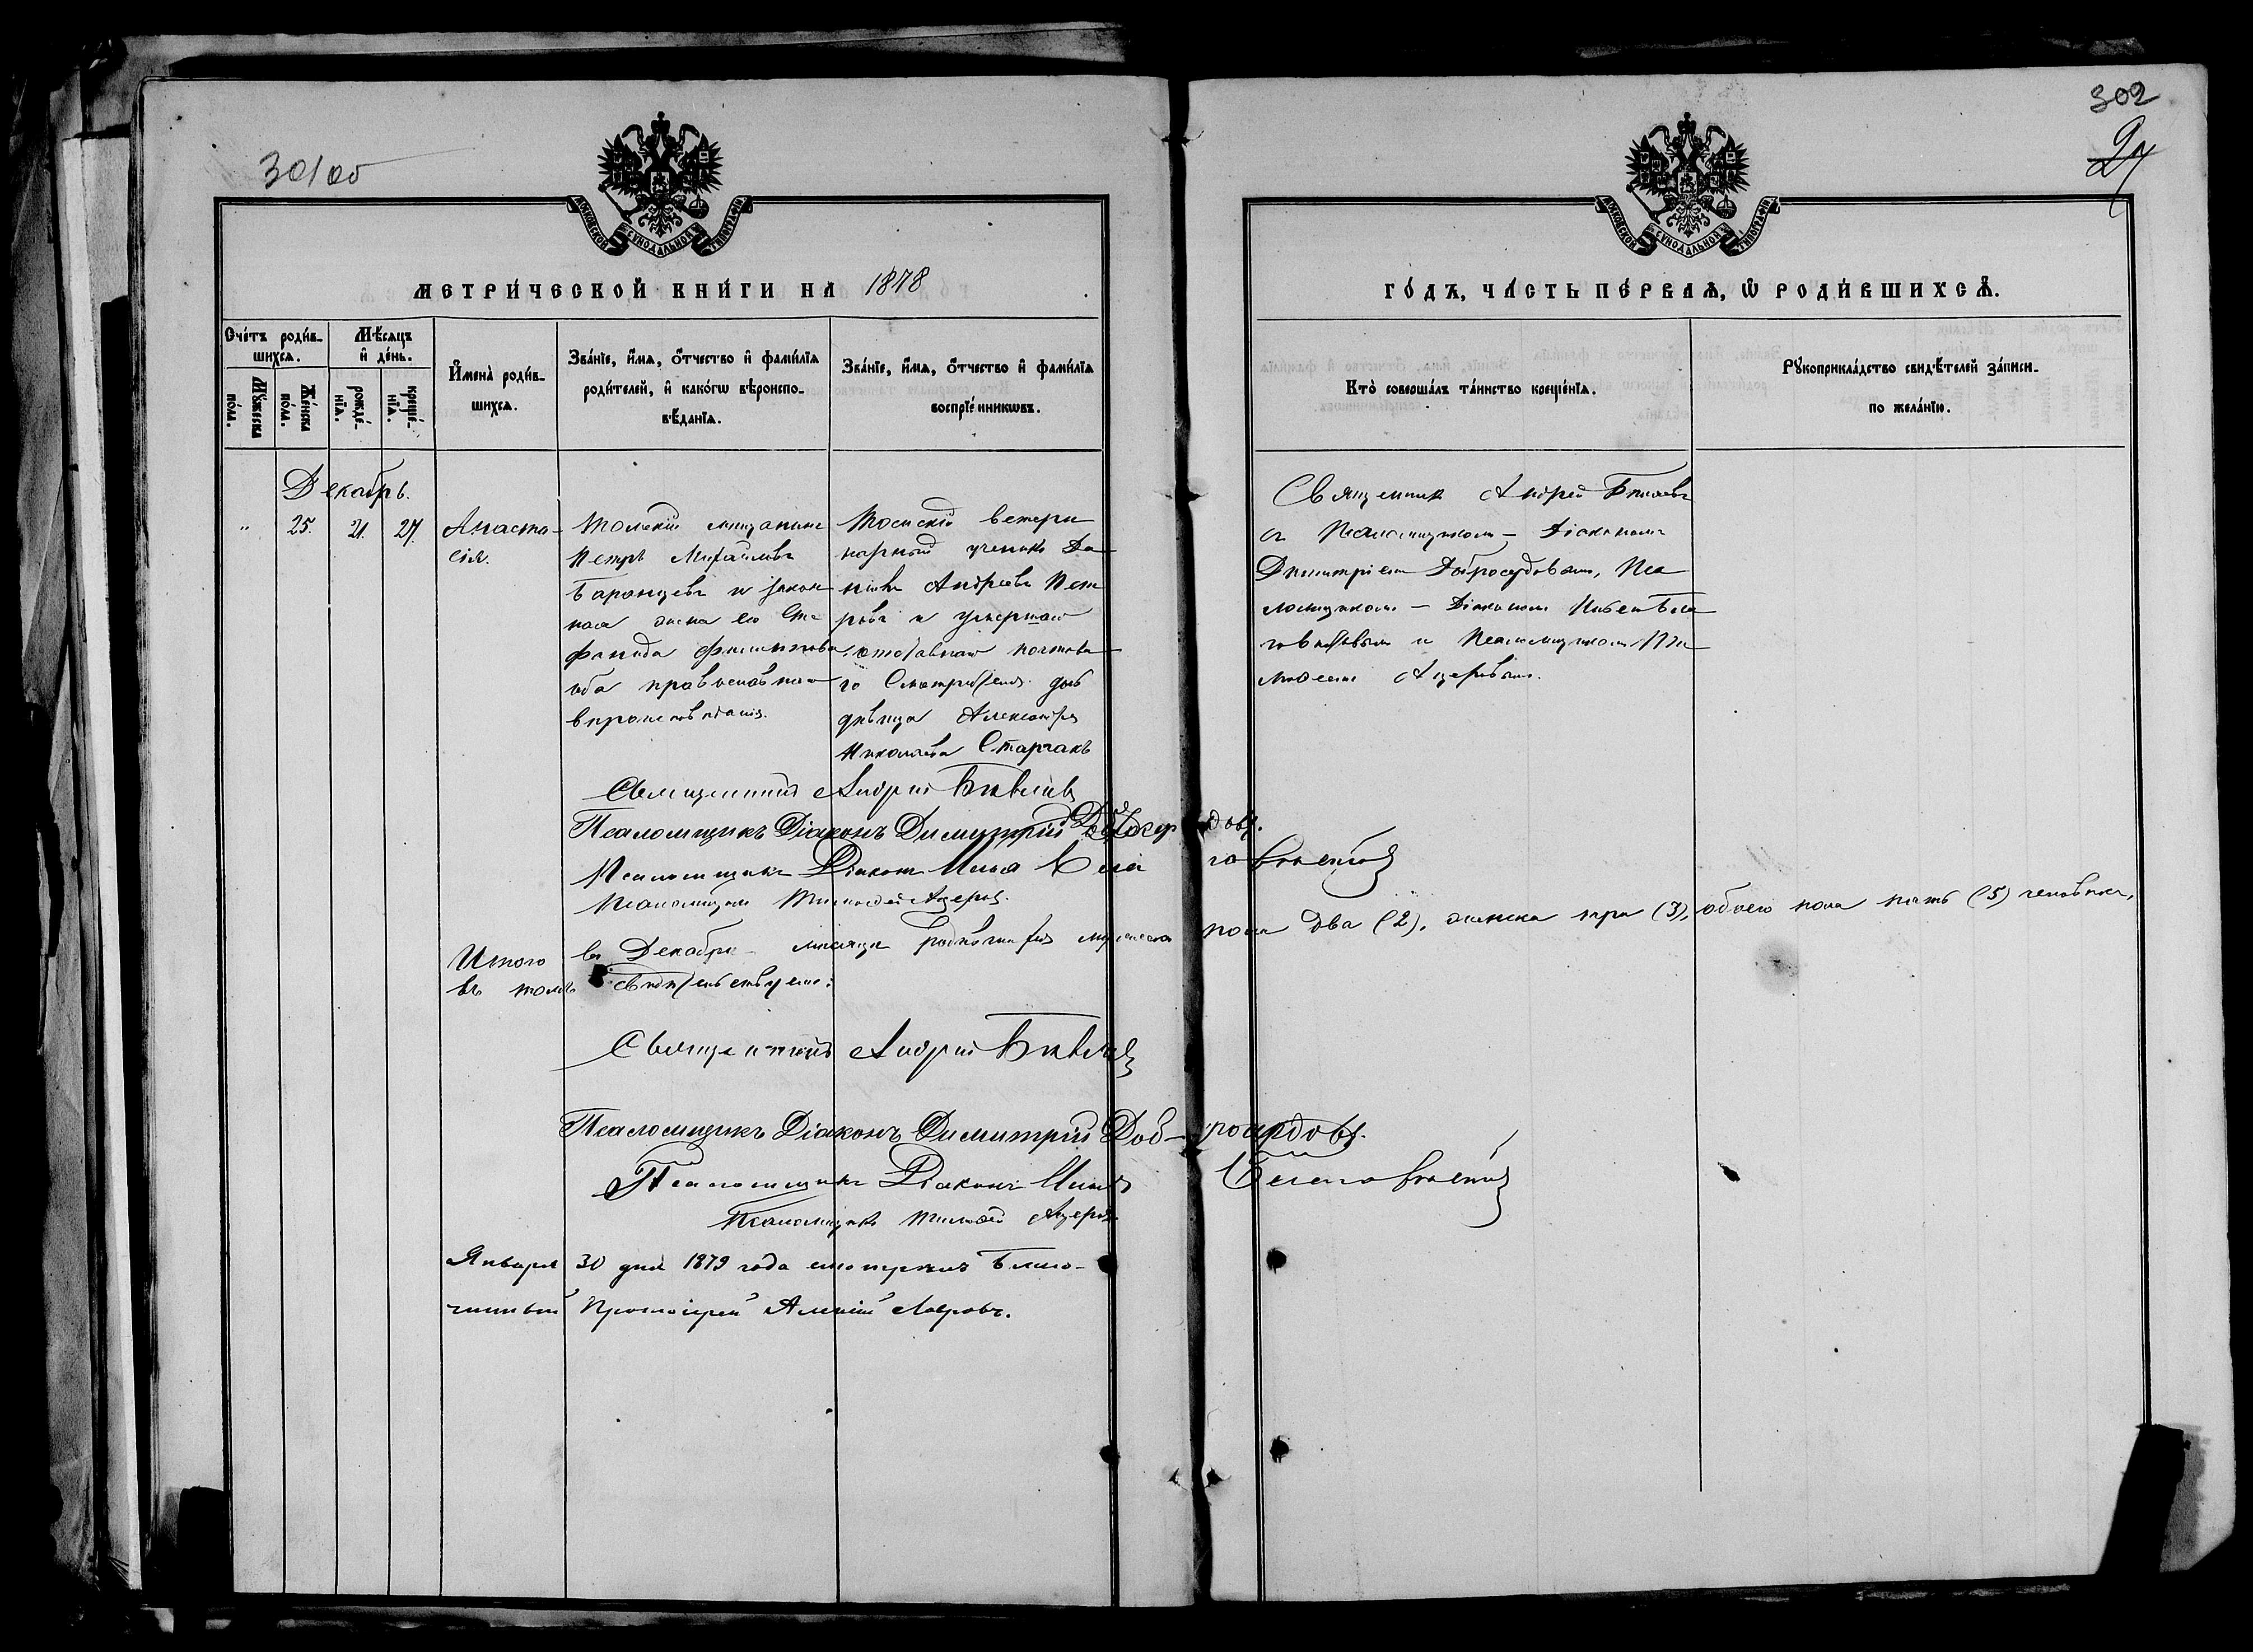 302
27
30/об
МОСКОВСКОЙ СѴНОДАЛЬНОЙ ТИПОГРАФІИ
МОСКОВСКОЙ СѴНОДАЛЬНОЙ ТИПОГРАФІИ
МЕТРИ́ЧЕСКОЙ КНИ́ГИ НА 1878
ГО́ДЪ, ЧА́СТЬ ПЕ́РВАѦ, Ѡ҆ РОДИ́ВШИХСѦ.
Сче́тъ роди́в-
шихсѧ.
Мꙋ́жеска по́ла.
Же́нска по́ла.
Мѣ́сѧцъ
и҆ де́нь.
рожде́-
нїѧ.
креще́-
нїѧ.
И҆мена̀ роди́в-
шихсѧ.
Зва́нїе, и҆́мѧ, ѻ҆́тчество и҆ фами́лїѧ
роди́телей, и҆ како́гѡ вѣроиспо-
вѣ́данїѧ.
Зва́нїе, и҆́мѧ, ѻ҆́тчество и҆ фами́лїѧ
воспрїе́мникѡвъ.
Кто̀ соверша́лъ та́инство креще́нїѧ.
Рꙋкоприкла́дство свидѣ́телей за́писи
по жела́нїю.
Декабрь.
" 25. 21. 27. Анаста-
сія.
Томскій мещанинъ
Петръ Михайловъ
Баранцевъ и закон
ная жена его Сте
фанида Филиппова
оба православнаго
вѣроисповѣданія.
Томскій ветери
нарный ученикъ Да
ніилъ Андреевъ Пет
ровъ и умершаго
отставнаго почтова
го Смотрителя дочь
дѣвица Александра
Николаева Старчакъ
Священникъ Андрей Бѣляевъ
съ Псаломщикомъ – Діакономъ
Димитріемъ Добросердовымъ, Пса
ломщикомъ – Діакономъ Ильею Бѣла
и Псаломщикомъ Ти
моѳеемъ Ацеровымъ.
Священникъ Андрей
Псаломщикъ Діаконъ Димитрій Добросердовъ.
Псаломщикъ Діаконъ Илья
Псаломщикъ Тимоѳей Ацеровъ.
Итого въ Декабрѣ мѣсяцѣ родившихся мужеска пола два (2), женска три (3), обоего пола пять (5) человѣкъ,
въ томъ свидѣтельствуемъ:
Священникъ Андрей
Псаломщикъ Діаконъ Димитрій Добросердовъ.
Псаломщикъ Діаконъ Илья
Псаломщикъ Тимоѳей Ацеровъ
Января 30 дня 1879 года смотрѣлъ Благо-
чинный Протоіерей Алексій Лавровъ.